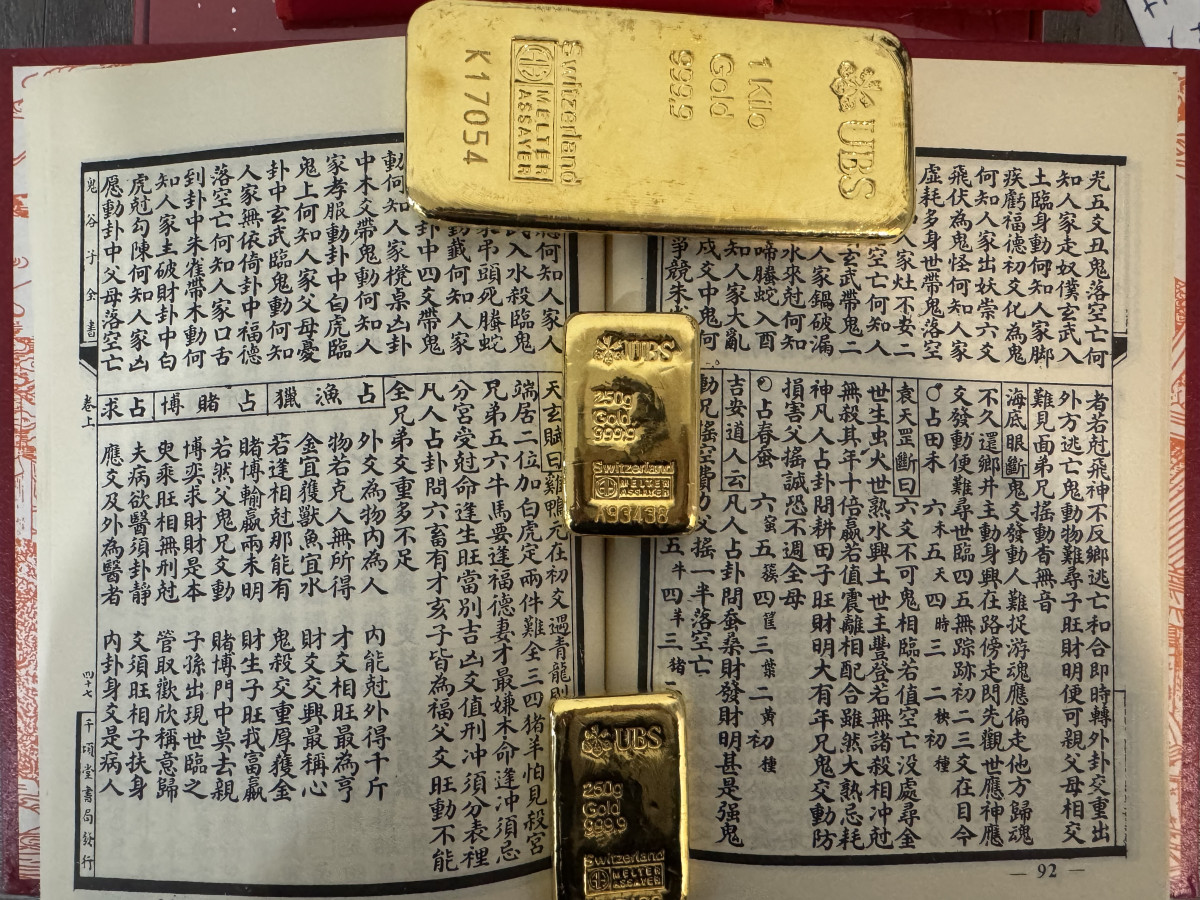 UBS
1 Kilo
Gold
999,9
Switzerland
MELTER
ASSAYER
K17054
光五爻丑鬼落空亡何
知人家走奴僕玄武入
土臨身動何知人家脚
疾虧福德初爻化為鬼
何知人家出妖祟六爻
飛伏為鬼怪何知人家
虛耗多身世帶鬼落空
人家灶不安二
空亡何知人
玄武帶鬼二
人家鍋破漏
水來尅何知
啼螣蛇入酉
知人家大亂
戌爻中鬼何
爭競朱
者若尅飛神不反鄉逃亡和合即時轉外卦交重出
外方逃亡鬼動物難尋子旺財明便可親父母相交
難見面弟兄搖動杳無音
海底眼斷鬼爻發動人難捉游魂應偏走他方歸魂
不久還鄉井主動身興在路傍走閃先觀世應神應
爻發動便難尋世臨四五無踪跡初二三爻在目今
占田禾 六本五天四時三 二秧初種
袁天罡斷曰六爻不可鬼相臨若值空亡没處尋金
世生虫火世熟水興土世主豐登若無諸殺相冲尅
無殺其年十倍贏若值震離相配合雖然大熟忌耗
神凡人占卦問耕田子旺財明大有年兄鬼交動防
損害父搖誠恐不週全母
占春蚕 六蚕五簇四筐三葉二黄初種
吉安道人云凡人占卦問蚕桑財發財明甚是强鬼
動兄搖空費力父搖一半落空亡
五牛四羊三猪
— 92 —
UBS
250g
Gold
999,9
Switzerland
MELTER
ASSAYER
UBS
250g
Gold
999,9
Switzerland
MELTER
ASSAYER
何知人家人
武入水殺臨鬼
家吊頭死螣蛇
動載何知人家
卦中四爻帶鬼
動何知人家櫈桌凶卦
中木爻帶鬼動何知人
家孝服動卦中白虎臨
鬼上何知人家父母憂
卦中玄武臨鬼動何知
人家無依倚卦中福德
落空亡何知人家口舌
到卦中朱雀帶木動何
知人家主破財卦中白
虎尅勾陳何知人家凶
愿動卦中父母落空亡
天玄賦曰難鴨元在初爻過青龍則
端居二位加白虎定兩件難全三四猪羊怕見殺宮
兄弟五六牛馬要逢福德妻才最嫌木命逢冲須忌
分宮受尅命逢生旺當別吉凶爻值刑冲須分表裡
凡人占卦問六畜有才亥子皆為福父爻旺動不能
全兄弟交重多不足
占漁獵
外爻為物内為人 内能尅外得千斤
物若克人無所得 才爻相旺最為亨
金宜獲獸魚宜水 財爻交興最稱心
若逢相尅那能有 鬼殺交重厚獲金
占賭博
賭博輸贏兩未明 財生子旺我富贏
若然父鬼兄爻動 賭博門中莫去親
博奕求財財是本 子孫出現世臨之
臾乘旺相無刑尅 管取歡欣稱意歸
占求
夫病欲醫須卦静 爻須旺相子扶身
應爻及外為醫者 内卦身爻是病人
鬼谷子全書
卷上
四十七
千頃堂書局發行